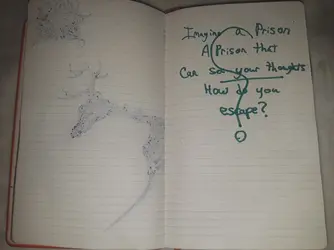 Imagine a Prison
A Prison that
Can see your thoughts
How do you
escape?